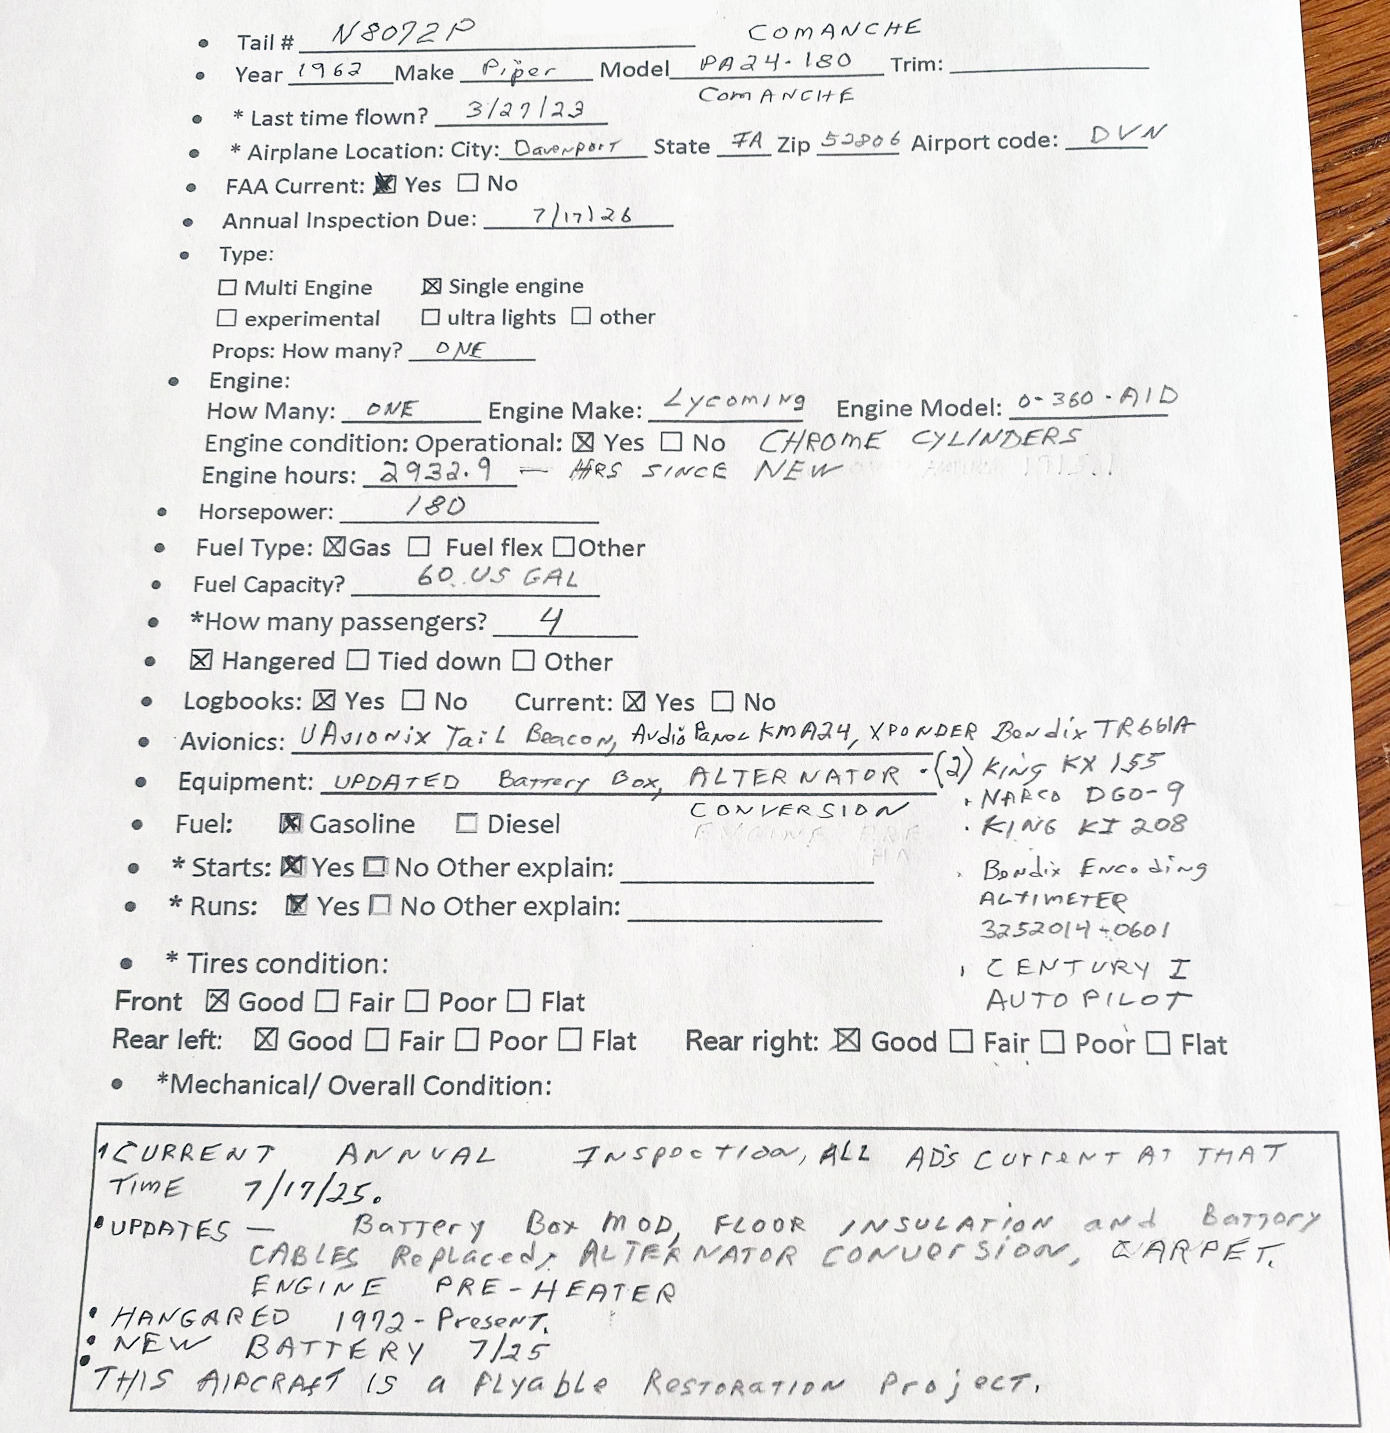 COMANCHE
• Tail # N8072P
• Year 1962 Make Piper Model PA24-180 Trim:
COMANCHE
• * Last time flown? 3/27/23
• * Airplane Location: City: Davenport State IA Zip 52806 Airport code: DVN
• FAA Current: ☒ Yes ☐ No
• Annual Inspection Due: 7/17/26
• Type:
☐ Multi Engine ☒ Single engine
☐ experimental ☐ ultra lights ☐ other
Props: How many? ONE
• Engine:
How Many: ONE Engine Make: Lycoming Engine Model: O-360-A1D
Engine condition: Operational: ☒ Yes ☐ No CHROME CYLINDERS
Engine hours: 2932.9 — HRS SINCE NEW
• Horsepower: 180
• Fuel Type: ☒ Gas ☐ Fuel flex ☐ Other
• Fuel Capacity? 60 US GAL
• *How many passengers? 4
• ☒ Hangered ☐ Tied down ☐ Other
• Logbooks: ☒ Yes ☐ No Current: ☒ Yes ☐ No
• Avionics: UAvionix Tail Beacon, Audio Panel KMA24, XPONDER Bendix TR661A
• Equipment: UPDATED Battery Box, ALTERNATOR • (2) KING KX 155
CONVERSION • NARCO DGO-9
• Fuel: ☒ Gasoline ☐ Diesel • KING KI 208
• * Starts: ☒ Yes ☐ No Other explain: • Bendix Encoding
ALTIMETER
• * Runs: ☒ Yes ☐ No Other explain:
3252014-0601
• * Tires condition: • CENTURY I
Front ☒ Good ☐ Fair ☐ Poor ☐ Flat AUTOPILOT
Rear left: ☒ Good ☐ Fair ☐ Poor ☐ Flat Rear right: ☒ Good ☐ Fair ☐ Poor ☐ Flat
• *Mechanical/ Overall Condition:
• CURRENT ANNUAL INSpection, ALL AD's Current AT THAT
TIME 7/17/25.
• UPDATES — Battery Box MOD, FLOOR INSULATION and Battery
CABLES Replaced, ALTERNATOR CONVersion, CARPET.
ENGINE PRE-HEATER
• HANGARED 1972 - PresenT.
• NEW BATTERY 7/25
• THIS AIRCRAFT IS a flyable RESTORATION Project.